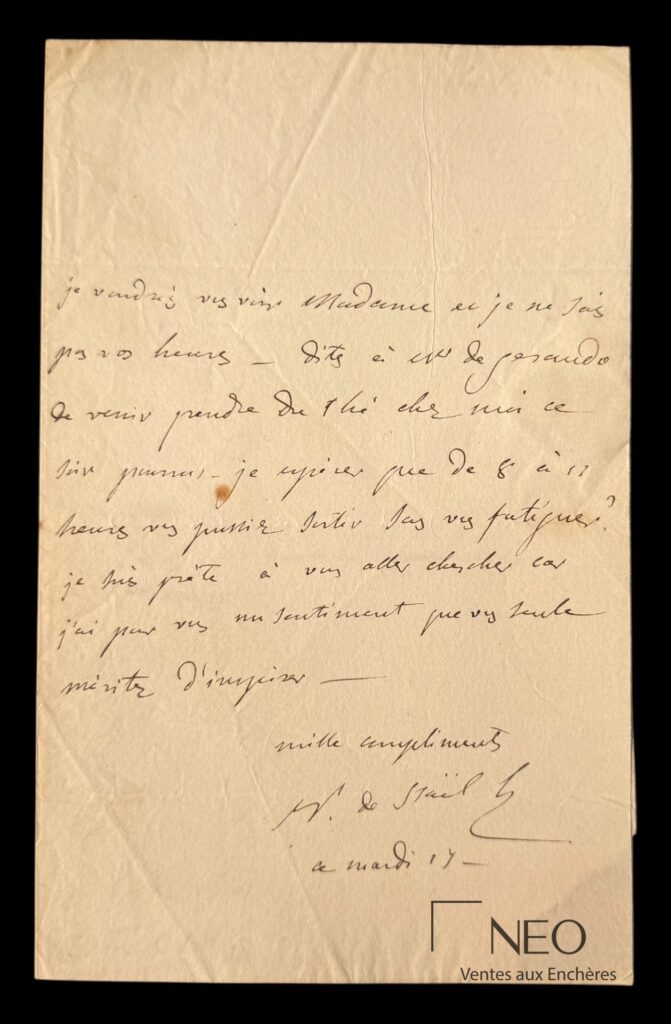 je voudrais vous voir Madame et je ne sais
pas vos heures — dites à Mr de gerando
de venir prendre du thé chez moi ce
soir je espérer que de 8 à 11
heures vous pussiez sortir sans vous fatiguer?
je suis prête à vous aller chercher car
j'ai pour vous un sentiment que vous seule
méritez d'inspirer —
mille compliments
N. de Staël h
ce mardi 17 —
NEO
Ventes aux Enchères